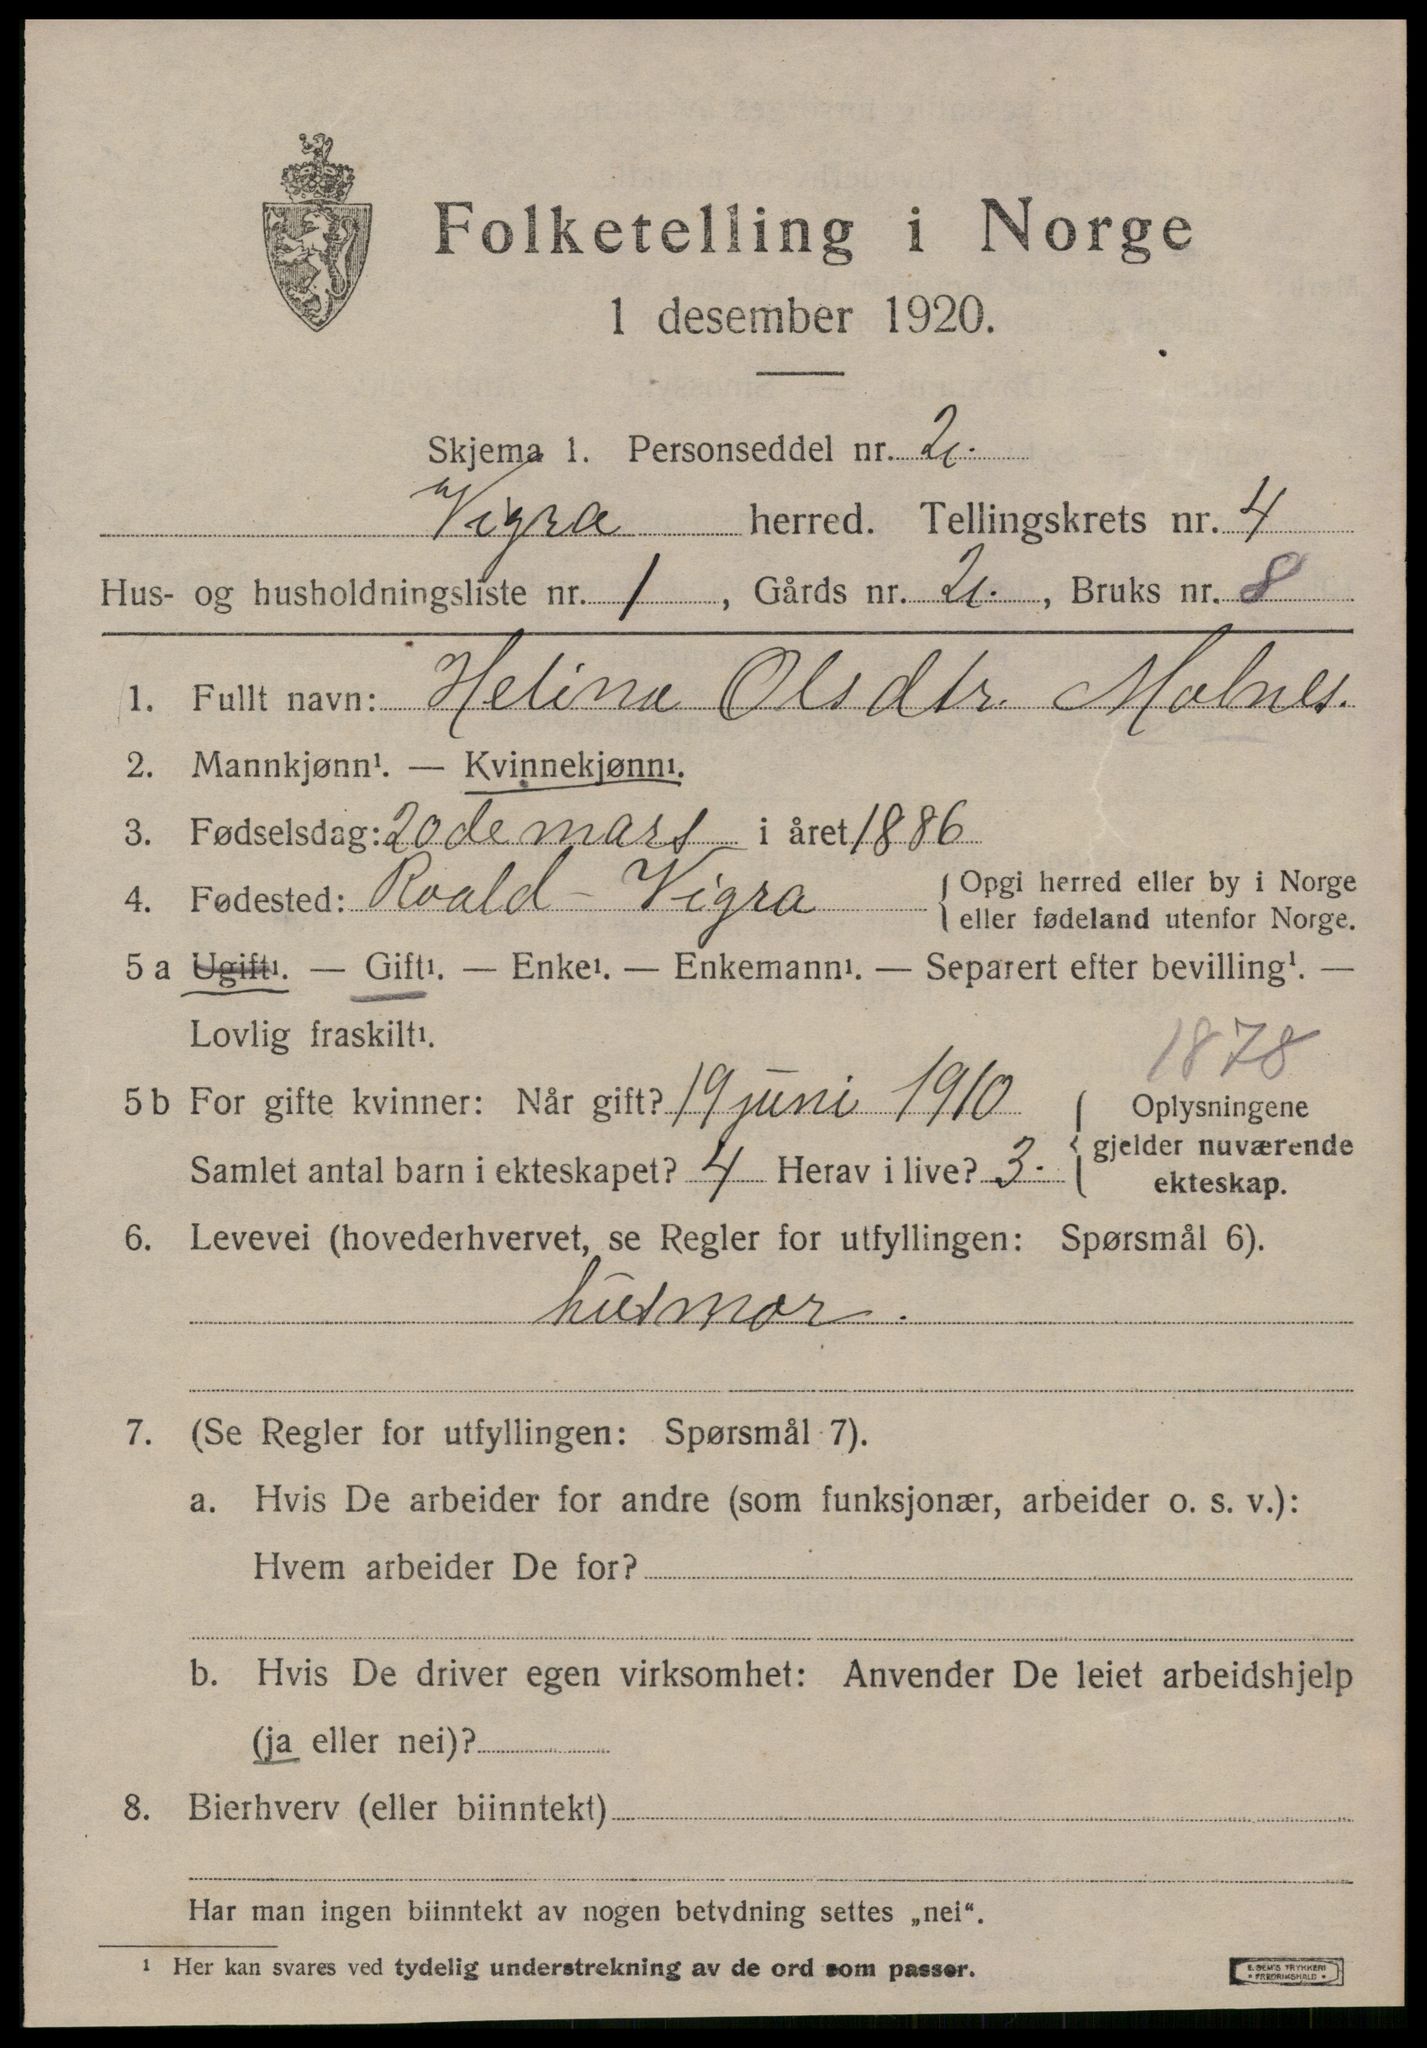 Folketelling i Norge
1 desember 1920.
Skjema 1. Personseddel nr. 2.
Vigra herred. Tellingskrets nr. 4
Hus- og husholdningsliste nr. 1, Gårds nr. 2., Bruks nr. 8
1. Fullt navn: Helina Olsdtr. Molnes.
2. Mannkjønn¹. — Kvinnekjønn¹.
3. Fødselsdag: 20de mars i året 1886
4. Fødested: Roald - Vigra { Opgi herred eller by i Norge
eller fødeland utenfor Norge.
5 a Ugift¹. — Gift¹. — Enke¹. — Enkemann¹. — Separert efter bevilling¹. —
Lovlig fraskilt¹.
1878
5 b For gifte kvinner: Når gift? 19 juni 1910 { Oplysningene
gjelder nuværende
Samlet antal barn i ekteskapet? 4 Herav i live? 3. ekteskap.
6. Levevei (hovederhvervet, se Regler for utfyllingen: Spørsmål 6).
husmor.
7. (Se Regler for utfyllingen: Spørsmål 7).
a. Hvis De arbeider for andre (som funksjonær, arbeider o. s. v.):
Hvem arbeider De for?
b. Hvis De driver egen virksomhet: Anvender De leiet arbeidshjelp
(ja eller nei)?
8. Bierhverv (eller biinntekt)
Har man ingen biinntekt av nogen betydning settes „nei“.
¹ Her kan svares ved tydelig understrekning av de ord som passer.
E. SEM'S TRYKKERI
• FREDRIKSHALD •